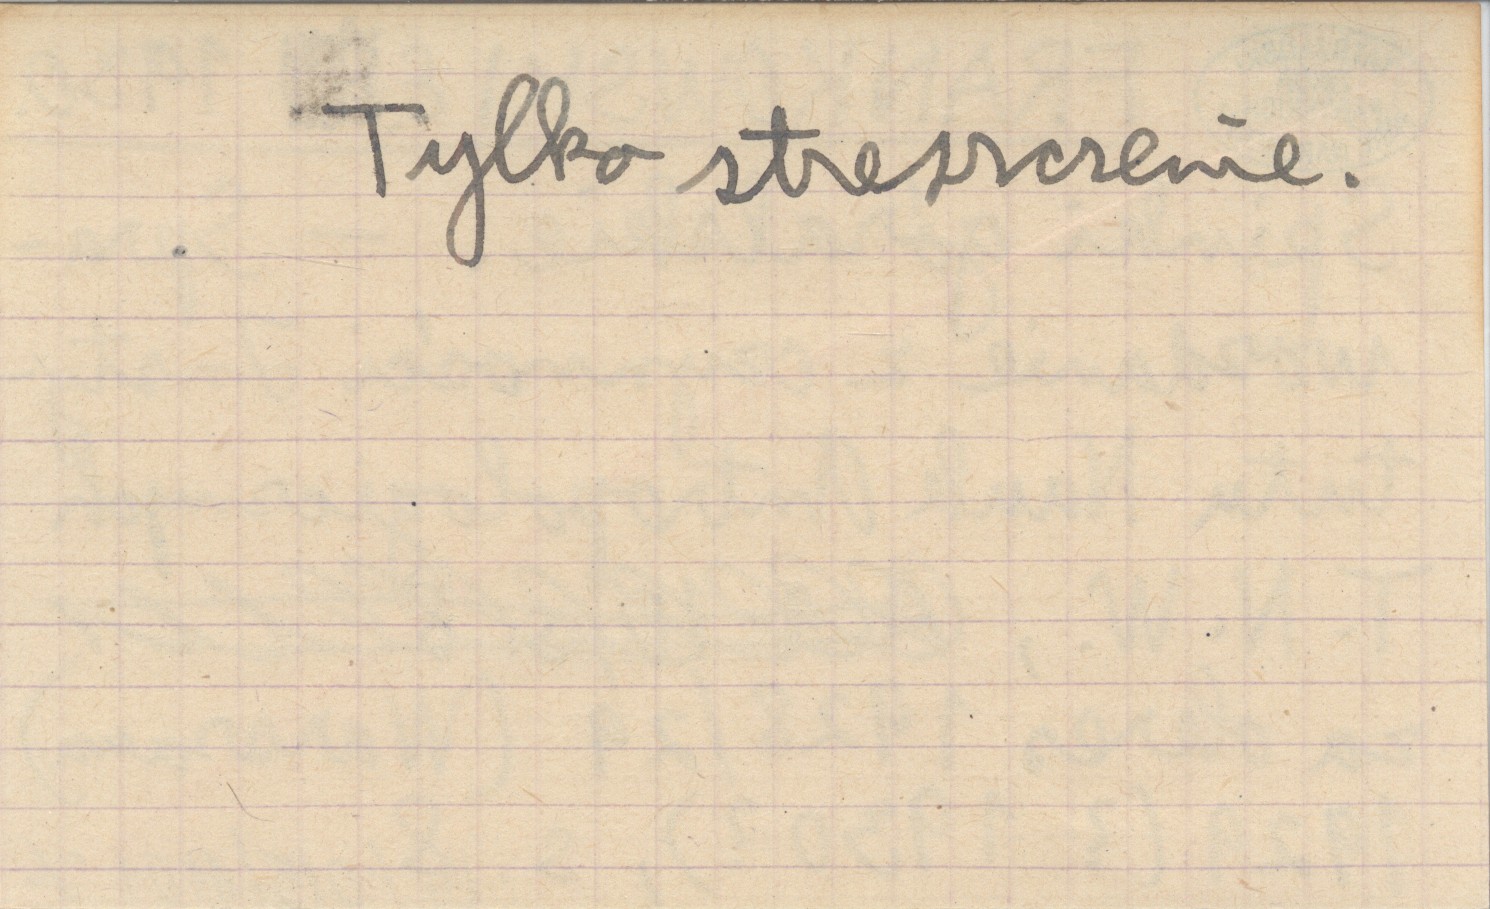 Tylko streszczenie.